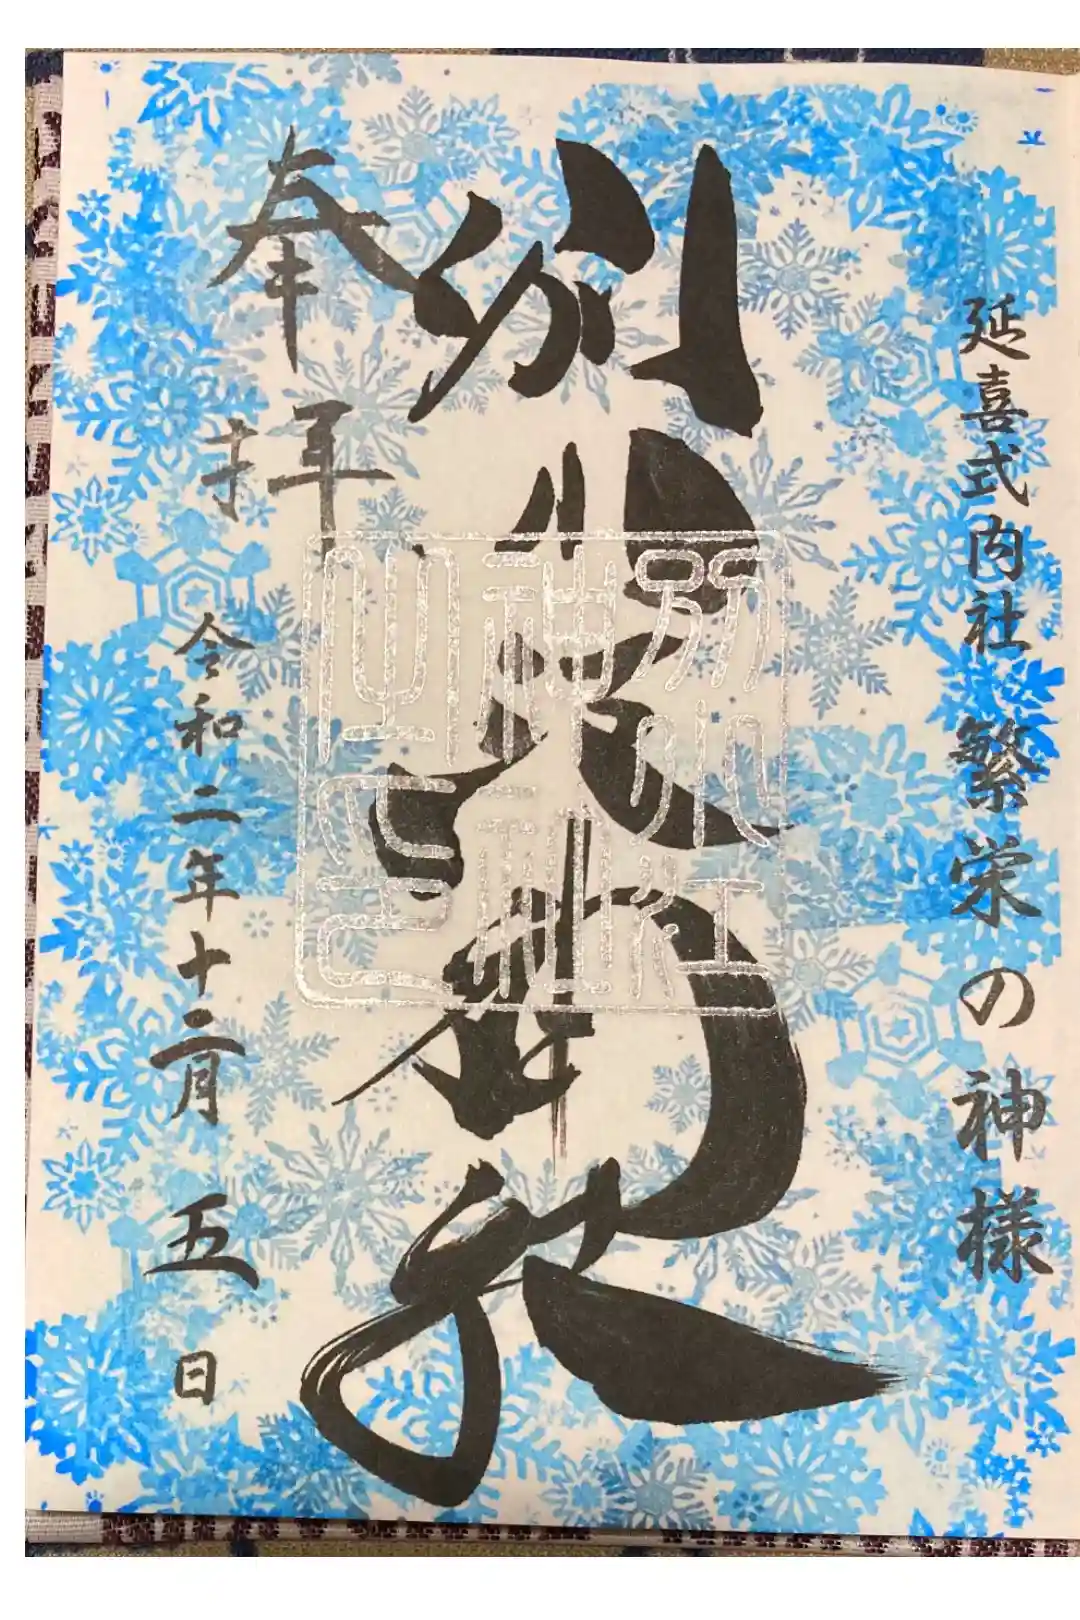 延喜式内社 繁栄の神様
別小江神社
奉拝
令和二年十二月 五日
別小江
神社
之印